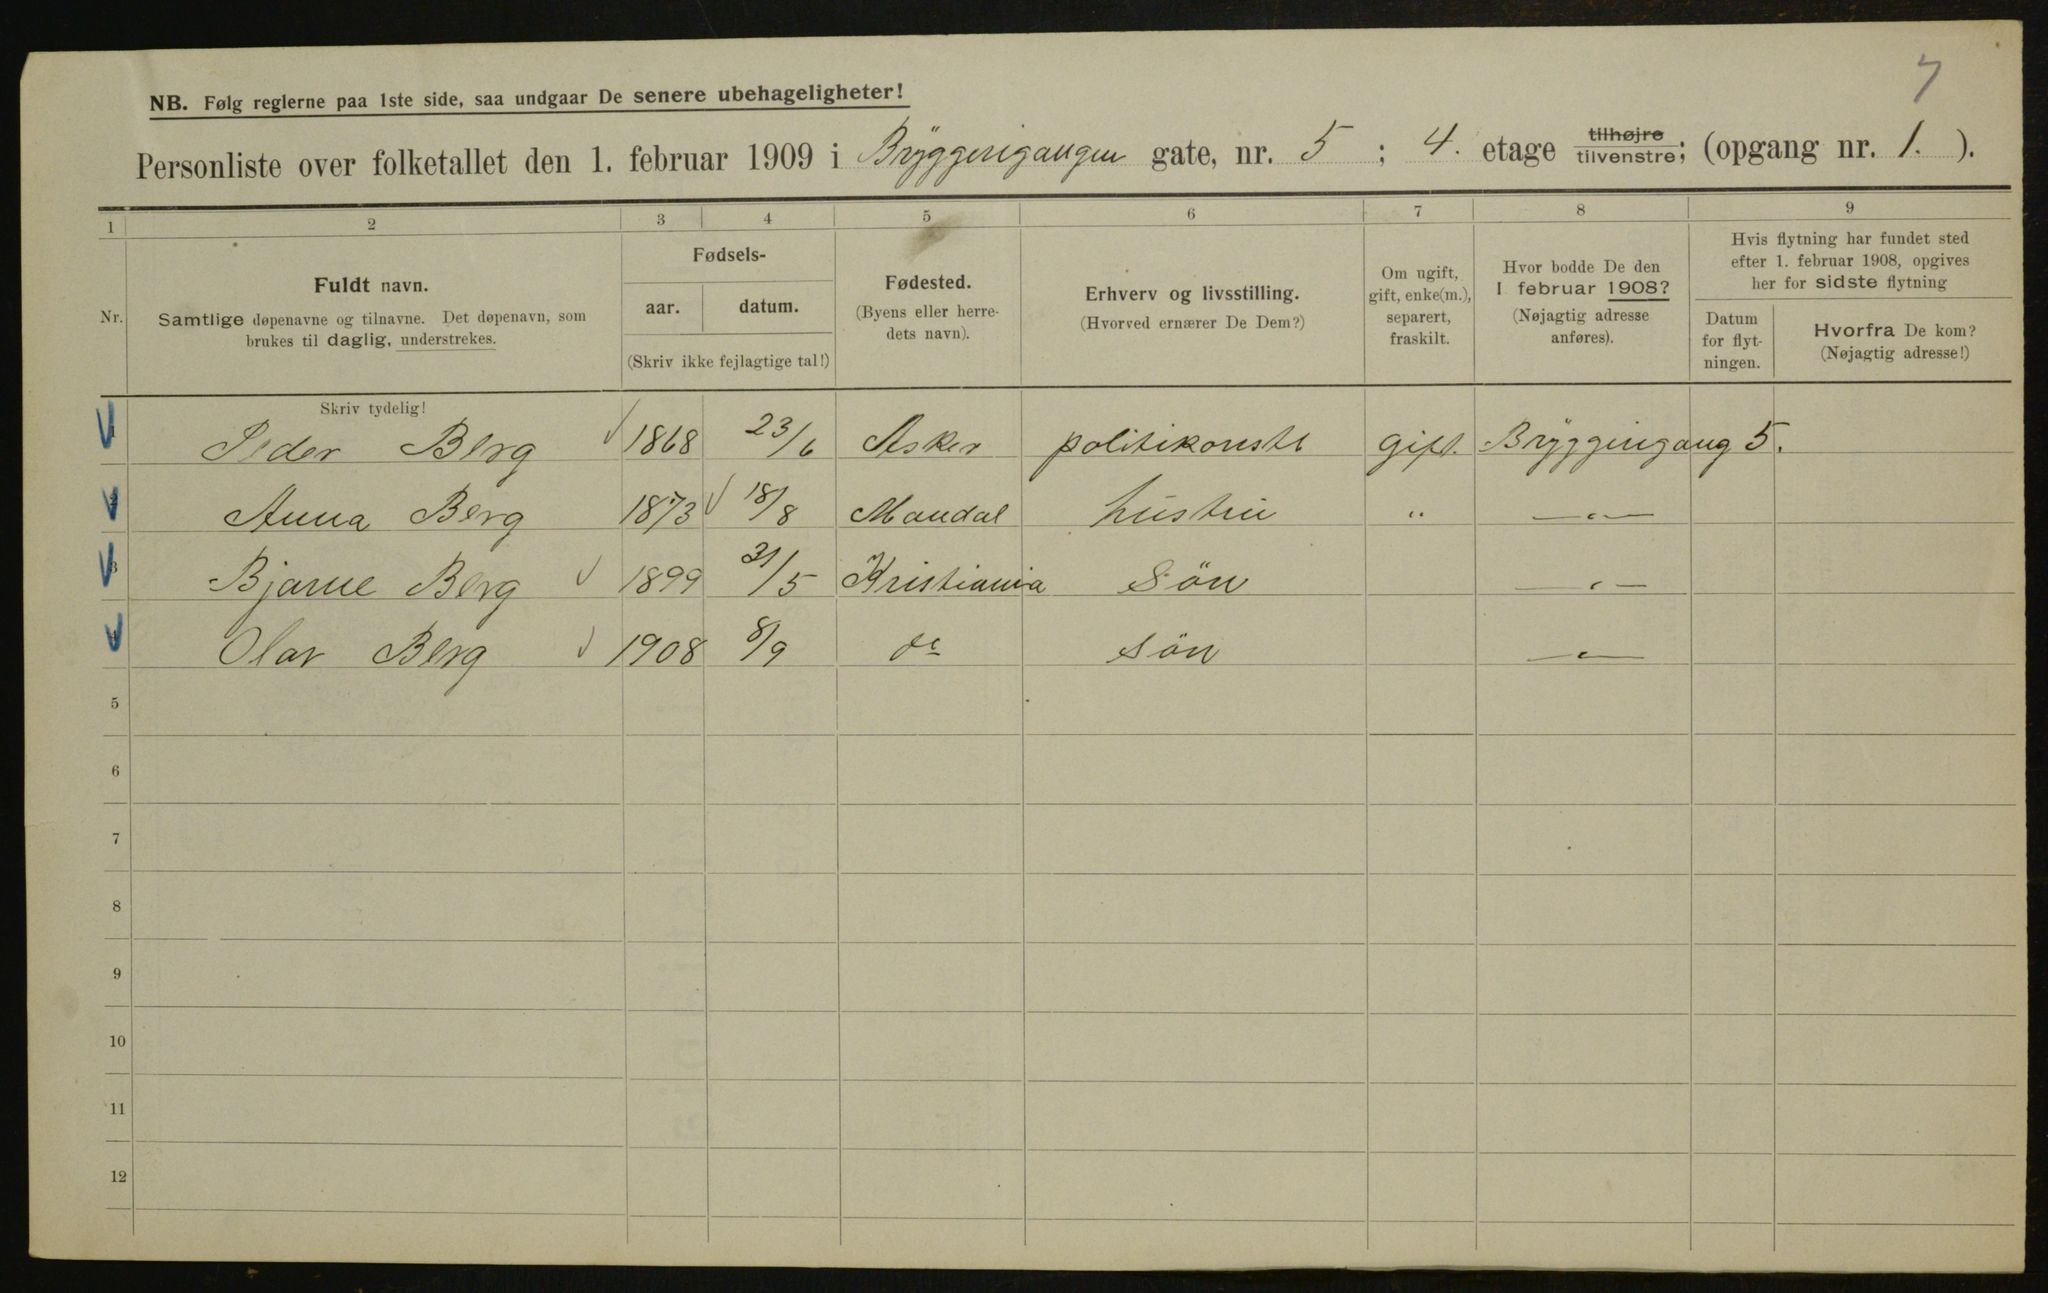 7
NB. Følg reglerne paa 1ste side, saa undgaar De senere ubehageligheter!
Personliste over folketallet den 1. februar 1909 i Brÿggerigangen gate, nr. 5 ; 4. etage tilhøjre tilvenstre; (opgang nr. 1. ).
1 2 3 4 5 6 7 8 9
Nr.
Fuldt navn.
Samtlige døpenavne og tilnavne. Det døpenavn, som
brukes til daglig, understrekes.
Skriv tydelig!
Fødsels-
aar. datum.
(Skriv ikke fejlagtige tal!)
Fødested.
(Byens eller herre-
dets navn).
Erhverv og livsstilling.
(Hvorved ernærer De Dem?)
Om ugift,
gift, enke(m.),
separert,
fraskilt.
Hvor bodde De den
1 februar 1908?
(Nøjagtig adresse
anføres).
Hvis flytning har fundet sted
efter 1. februar 1908, opgives
her for sidste flytning
Datum
for flyt-
ningen.
Hvorfra De kom?
(Nøjagtig adresse!)
1 Peder Berg 1868 23/6 Asker politikonstb gift. Brÿggerigang 5.
2 Anna Berg 1873 18/8 Mandal hüstru " —"—
3 Bjarne Berg 1899 31/5 Kristiania Sön —"—
4 Olav Berg 1908 8/9 do Sön —"—
5
6
7
8
9
10
11
12